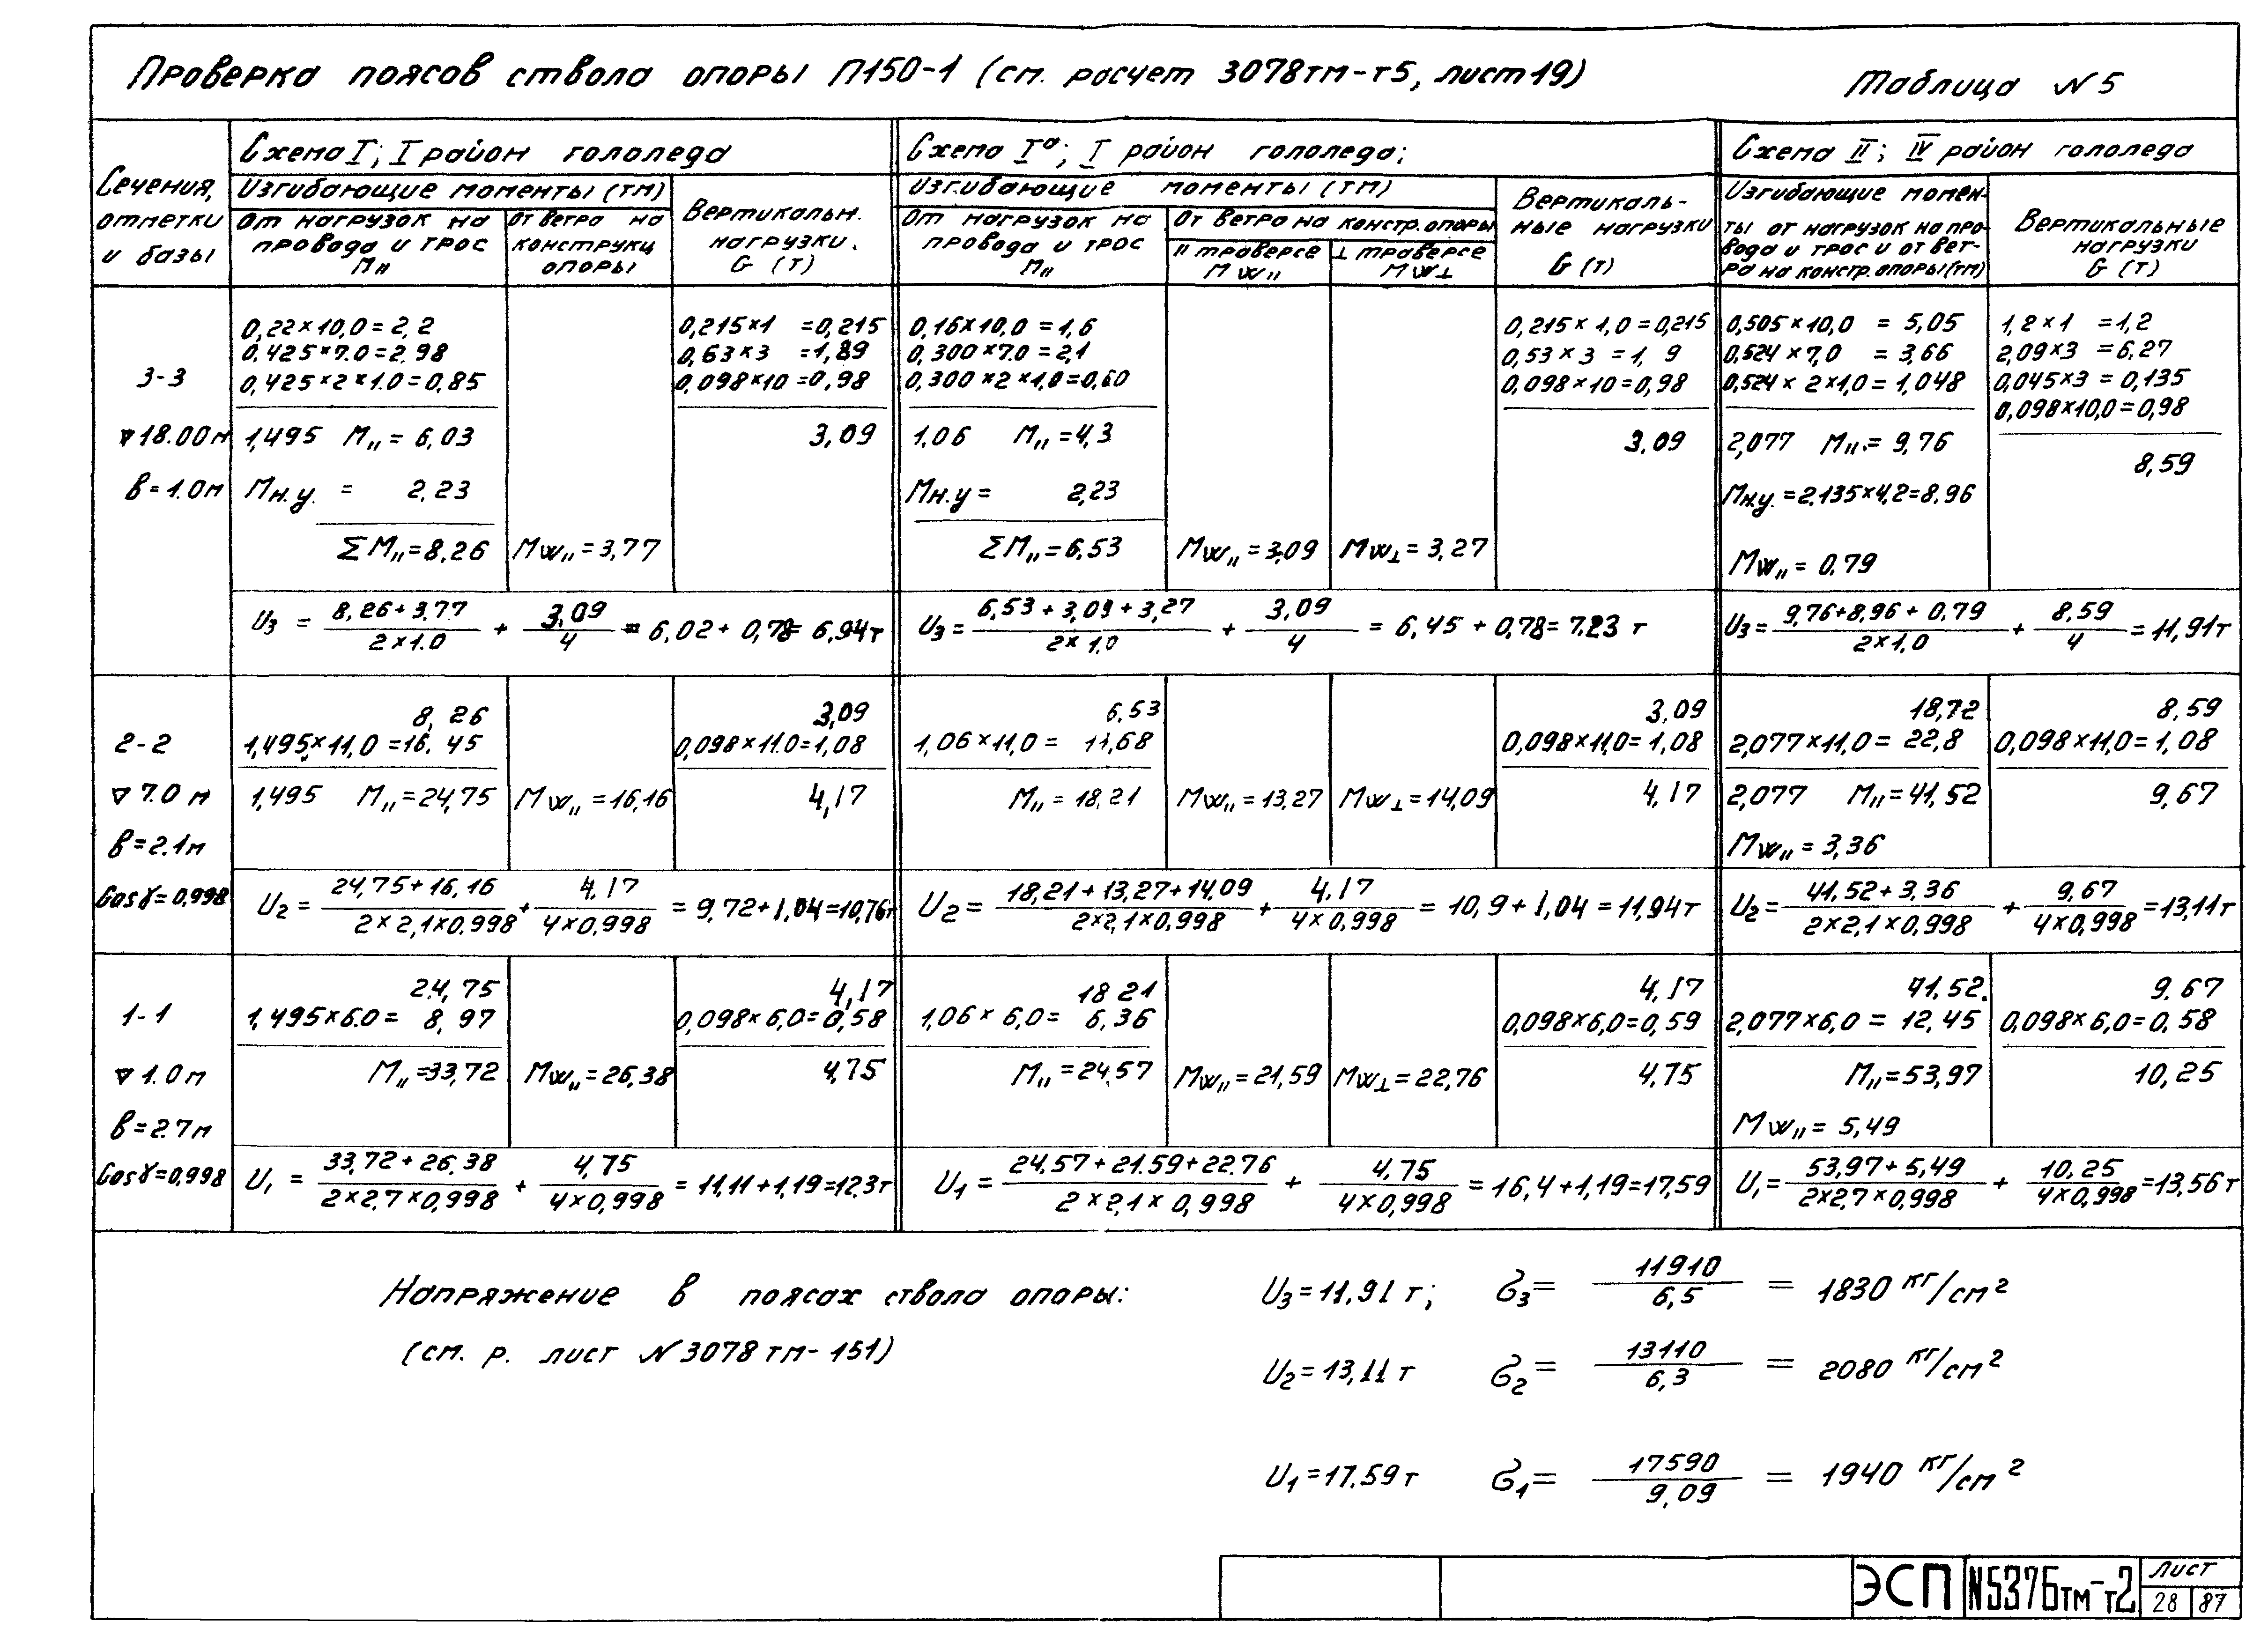 Проверка поясов ствола опоры П150-1 (см. расчет 3078тм-т5, лист 19)
Таблица N 5
Сечения, отметки и базы
Схема I; I район гололеда
Изгибающие моменты (тм)
От нагрузок на провода и трос M∥
От ветра на конструкц опоры
Вертикальн. нагрузки. G (т)
Схема Iа; I район гололеда;
Изгибающие моменты (тм)
От нагрузок на провода и трос M∥
От ветра на констр. опоры
∥ траверсе MW∥
⊥ траверсе MW⊥
Вертикальные нагрузки G (т)
Схема II; IV район гололеда
Изгибающие момен-
ты от нагрузок на про-
вода и трос и от вет-
ра на констр. опоры (тм)
Вертикальные нагрузки G (т)
3-3
▽18.00м
в=1.0м
0,22×10,0=2,2
0,425×7.0=2.98
0,425×2×1.0=0,85
1,495 M∥=6,03
Mн.у. = 2,23
ΣM∥=8,26
MW∥=3,77
0,215×1 =0,215
0,63×3 =1,89
0,098×10=0,98
3,09
0,16×10,0=1,6
0,300×7.0=2,1
0,300×2×1,0=0,60
1,06 M∥=4,3
Mн.у= 2,23
ΣM∥=6,53
MW∥=3,09
MW⊥=3,27
0,215×1,0=0,215
0,53×3=1, 9
0,098×10=0,98
3,09
0,505×10,0 = 5,05
0,524×7,0 = 3,66
0,524×2×1,0=1,048
2,077 M∥.=9,76
Mн.у.=2.135×4,2=8.96
MW∥=0,79
1,2×1 =1,2
2,09×3 =6,27
0,045×3=0,135
0,098×10,0=0,98
8,59
U3 = 8,26+3,77 / 2×1.0 + 3,09 / 4 = 6,02+0,78= 6,94т
U3= 6,53+3,09+3,27 / 2×1,0 + 3,09 / 4 = 6,45+0,78=7.23 т
U3= 9,76+8,96+0,79 / 2×1,0 + 8,59 / 4 =11,91т
2-2
▽7.0 м
в=2.1м
Cosγ=0,998
8, 26
1,495×11,0=16, 45
1,495 M∥=24,75
MW∥=16,16
3,09
0,098×11.0=1,08
4,17
6,53
1,06×11,0= 11,68
M∥=18,21
MW∥=13,27
MW⊥=14,09
3,09
0,098×11,0=1,08
4,17
18,72
2,077×11,0=22,8
2,077 M∥=41,52
MW∥=3,36
8,59
0,098×11,0=1,08
9,67
U2= 24,75+16,16 / 2×2,1×0,998 + 4,17 / 4×0,998 =9,72+1,04=10,76т
U2= 18,21+13,27+14,09 / 2×2,1×0,998 + 4,17 / 4×0,998 =10,9+1,04=11,94т
U2= 41,52+3,36 / 2×2,1×0,998 + 9,67 / 4×0,998 =13,11т
1-1
▽1.0м
в=2.7м
Cosγ=0,998
24,75
1,495×6.0= 8,97
M∥=33,72
MW∥=26,38
4,17
0,098×6,0=0,58
4,75
18 21
1,06×6,0= 6,36
M∥=24,57
MW∥=21,59
MW⊥=22,76
4,17
0,098×6,0=0,59
4,75
41,52.
2,077×6,0=12,45
M∥=53,97
MW∥=5,49
9.67
0,098×6,0=0,58
10,25
U1= 33,72+26.38 / 2×2.7×0,998 + 4,75 / 4×0,998 =11,11+1,19=12,3т
U1= 24,57+21.59+22.76 / 2×2,1×0,998 + 4,75 / 4×0,998 =16,4+1,19=17,59
U1= 53,97+5,49 / 2×2,7×0,998 + 10,25 / 4×0,998 =13,56т
Напряжение в поясах ствола опоры:
(см. р. лист N3078тм-151)
U3=11.91 т; σ3= 11910 / 6,5 = 1830 кг/см2
U2=13,11 т σ2= 13110 / 6,3 = 2080 кг/см2
U1=17.59т σ1= 17590 / 9,09 = 1940 кг/см2
ЭСП N5376тм-т2 лист 28 87